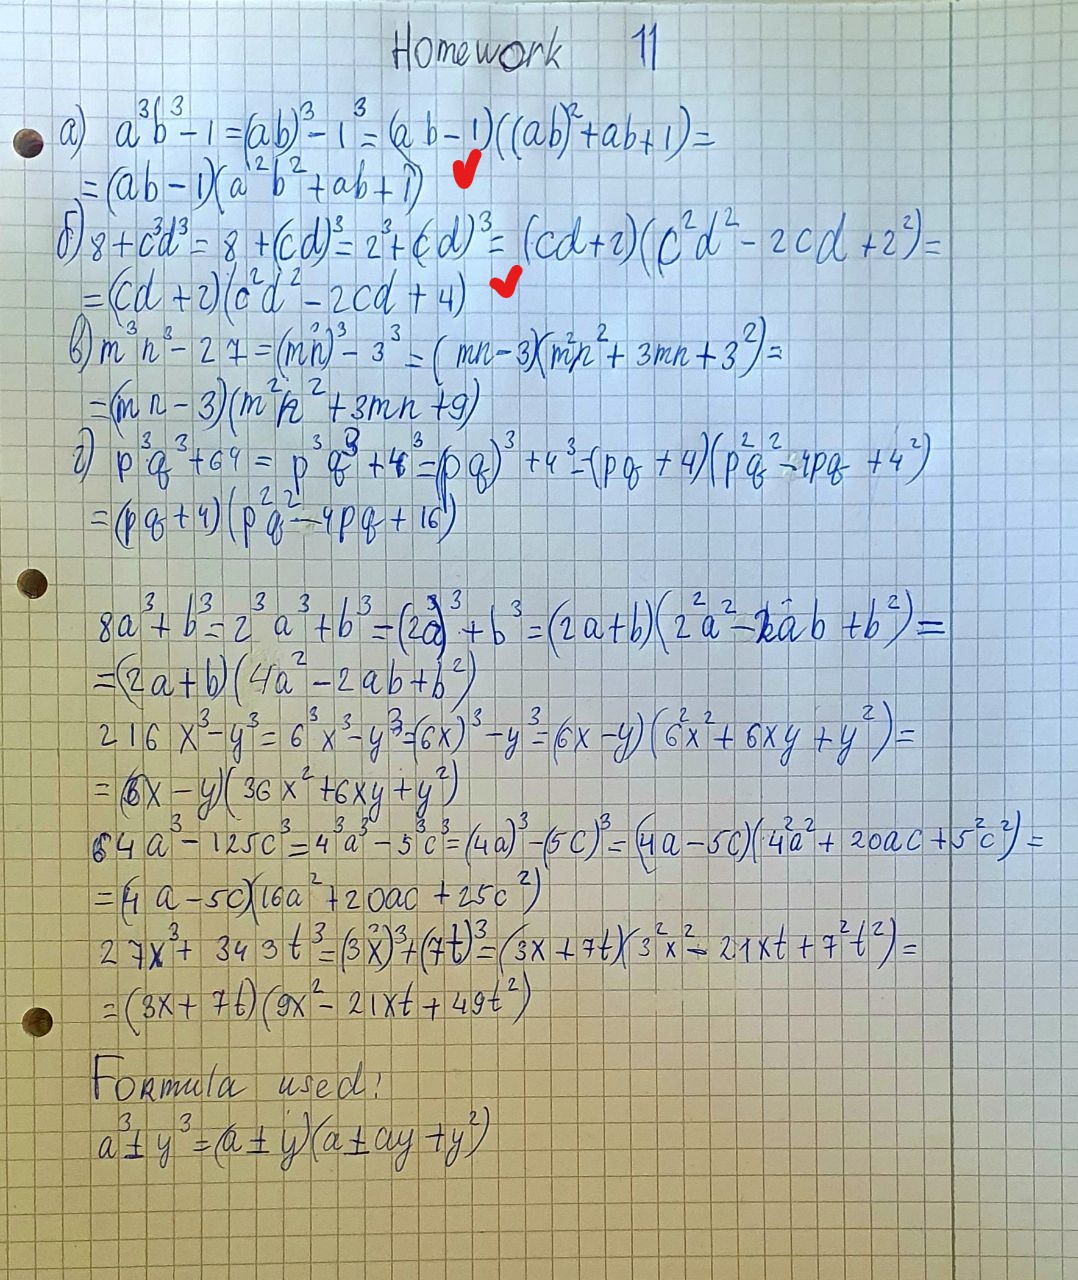 Homework 11
а) a³b³ - 1 = (ab)³ - 1³ = (ab - 1)((ab)² + ab + 1) =
= (ab - 1)(a²b² + ab + 1)
б) 8 + c³d³ = 8 + (cd)³ = 2³ + (cd)³ = (cd + 2)(c²d² - 2cd + 2²) =
= (cd + 2)(c²d² - 2cd + 4)
в) m³n³ - 27 = (mn)³ - 3³ = (mn - 3)(m²n² + 3mn + 3²) =
= (mn - 3)(m²n² + 3mn + 9)
г) p³q³ + 64 = p³q³ + 4³ = (pq)³ + 4³ = (pq + 4)(p²q² - 4pq + 4²)
= (pq + 4)(p²q² - 4pq + 16)
8a³ + b³ = 2³a³ + b³ = (2a)³ + b³ = (2a + b)(2²a² - 2ab + b²) =
= (2a + b)(4a² - 2ab + b²)
216x³ - y³ = 6³x³ - y³ = (6x)³ - y³ = (6x - y)(6²x² + 6xy + y²) =
= (6x - y)(36x² + 6xy + y²)
64a³ - 125c³ = 4³a³ - 5³c³ = (4a)³ - (5c)³ = (4a - 5c)(4²a² + 20ac + 5²c²) =
= (4a - 5c)(16a² + 20ac + 25c²)
27x³ + 343t³ = (3x)³ + (7t)³ = (3x + 7t)(3²x² - 21xt + 7²t²) =
= (3x + 7t)(9x² - 21xt + 49t²)
Formula used:
a³ ± y³ = (a ± y)(a ± ay + y²)